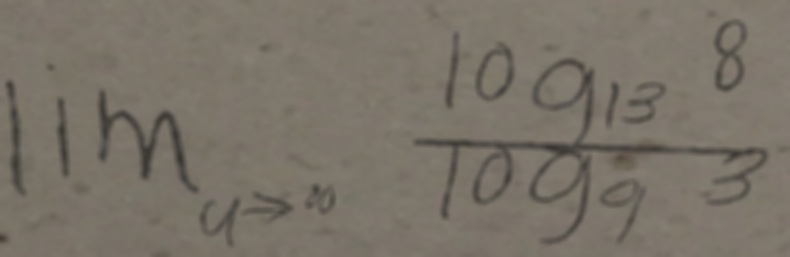 lim_{y→∞} \frac{log_{13} 8}{log_9 3}